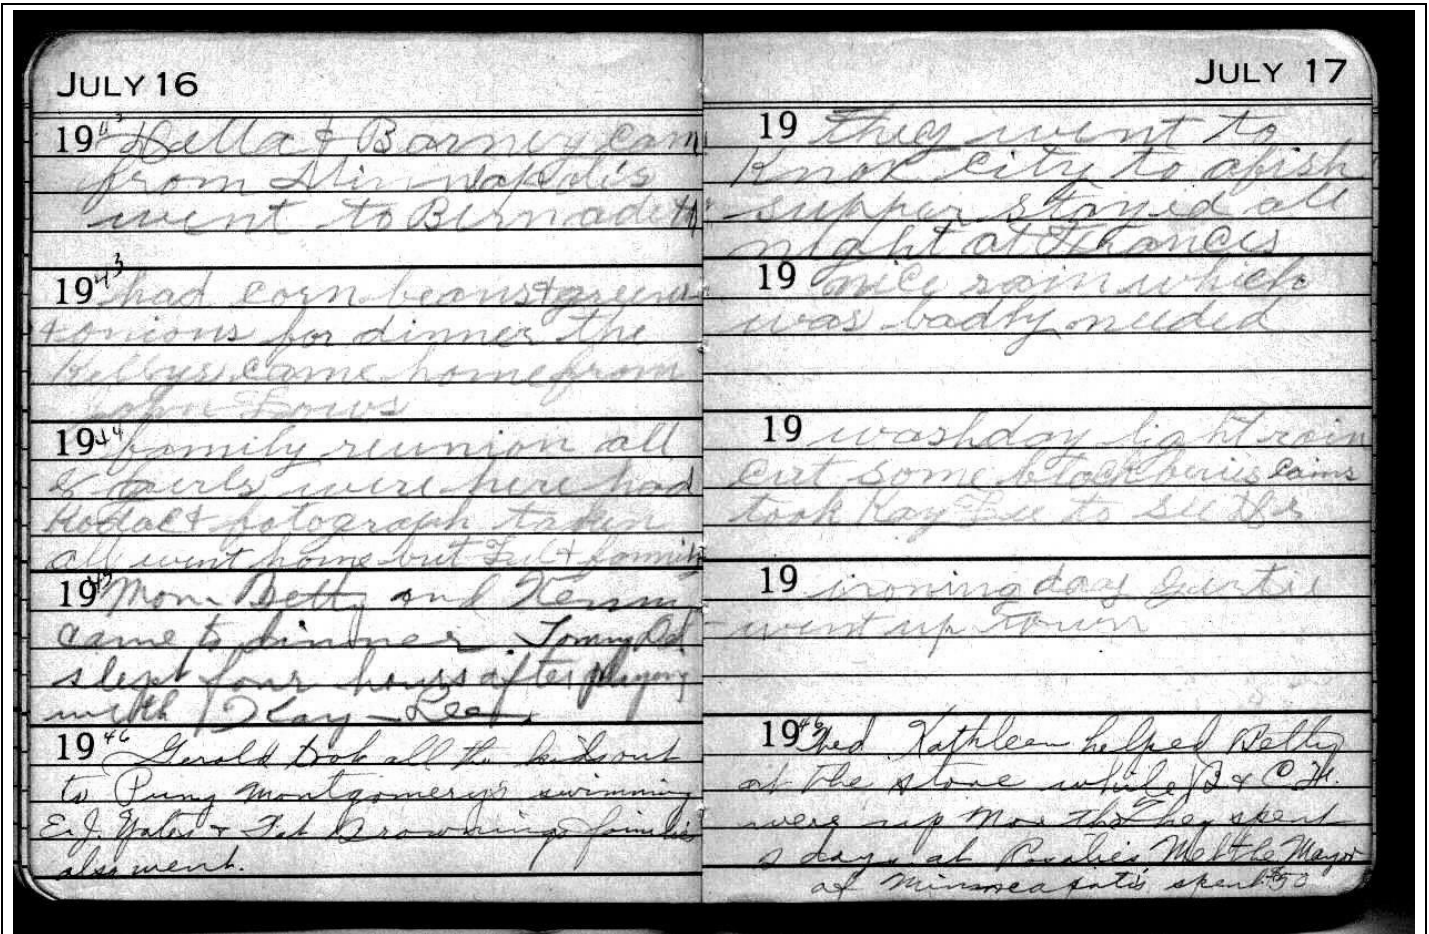 JULY 16
19 43 Della & Barney cam
from Minnapolis
went to Bernadett
19 43 had corn beans & green
& onions for dinner the
Kellys came home from
19 44 family reunion all
8 girls were here had
Kodac & fotograph taken
all went home but & family
19 45 Mom Betty and Kenny
came to dinner Tommy
slept four hours after playing
with Kay Lee
19 46 Gerald took all the kids out
to Puny Montgomerys swimming
E.J. Yates & Brownings families
also went.
JULY 17
19 they went to
Knox City to a fish
suppar stayed all
night at Francis
19 nice rain which
was badly needed
19 washday light rain
cut some black beries cains
took Kay Lee to see
19 ironing day Gertie
went up town
19 46 Wed Kathleen helped Betty
at the store while B & C
were up North They spent
days at Rosalie's Met the Mayor
of Minneapolis spent $50